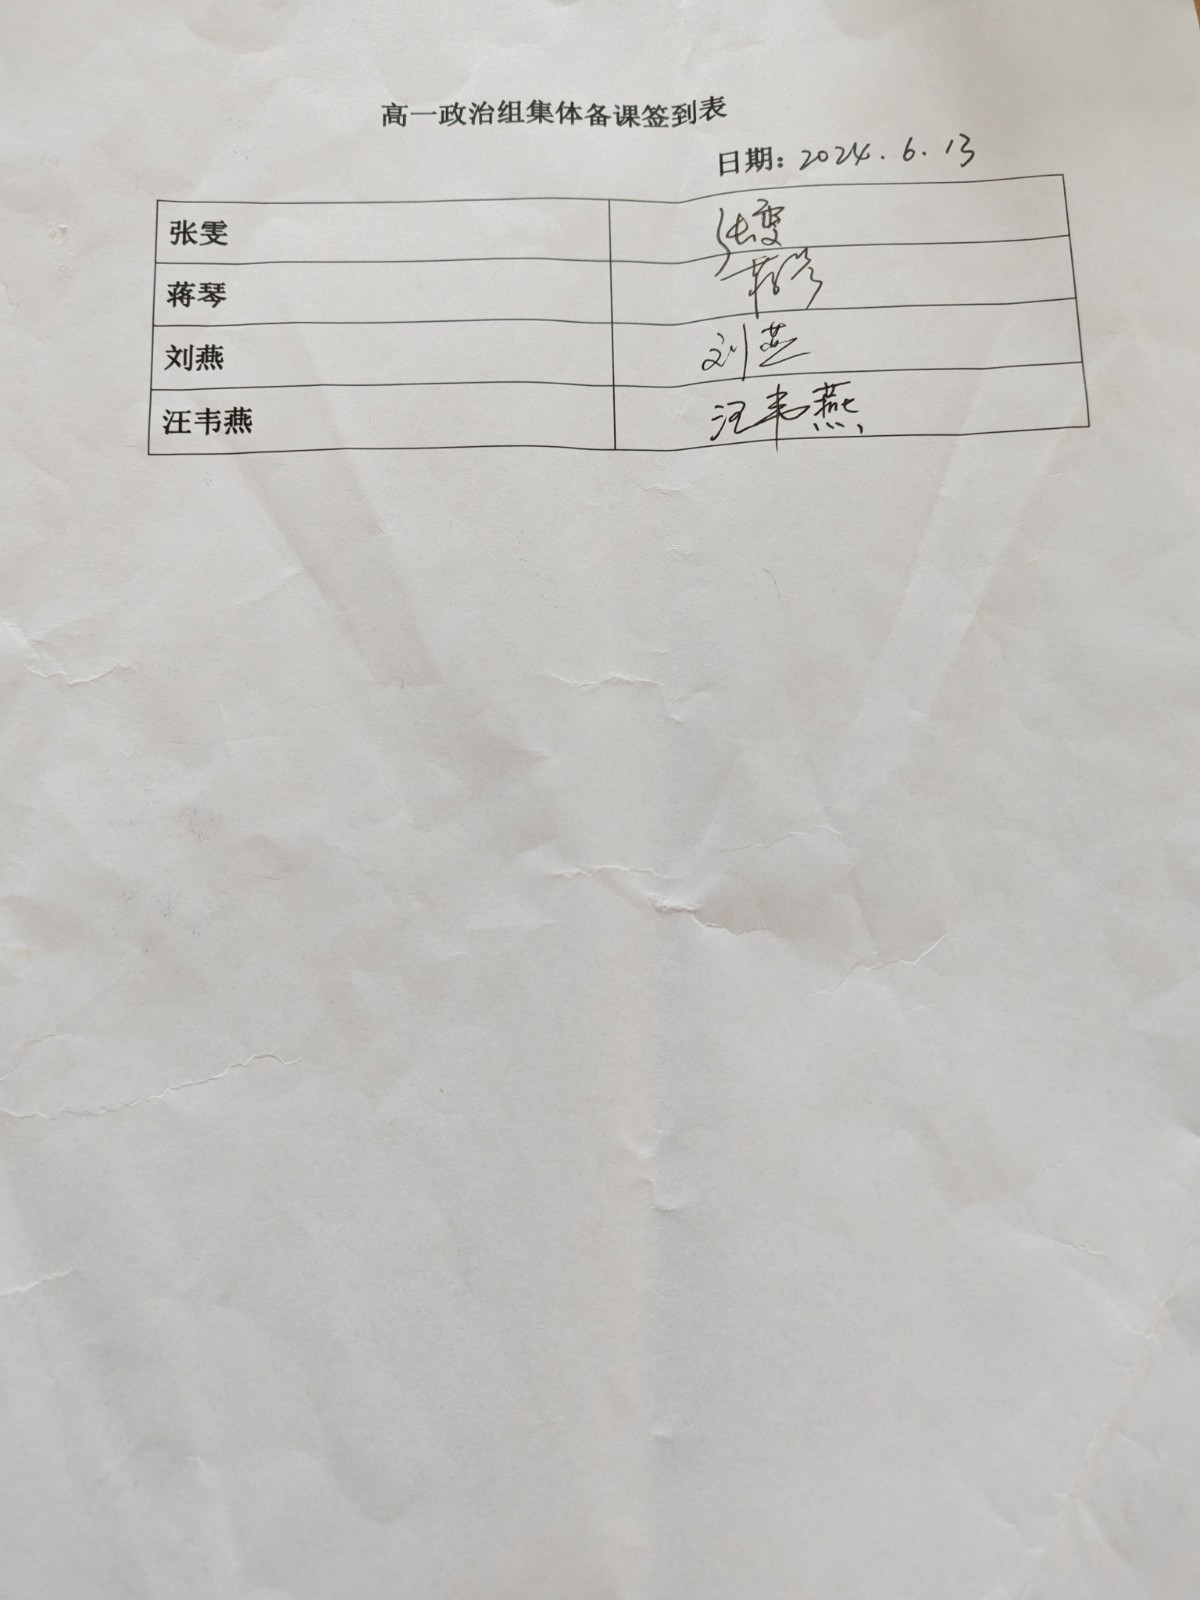 高一政治组集体备课签到表
日期：2024.6.13
张雯 张雯
蒋琴 蒋琴
刘燕 刘燕
汪韦燕 汪韦燕